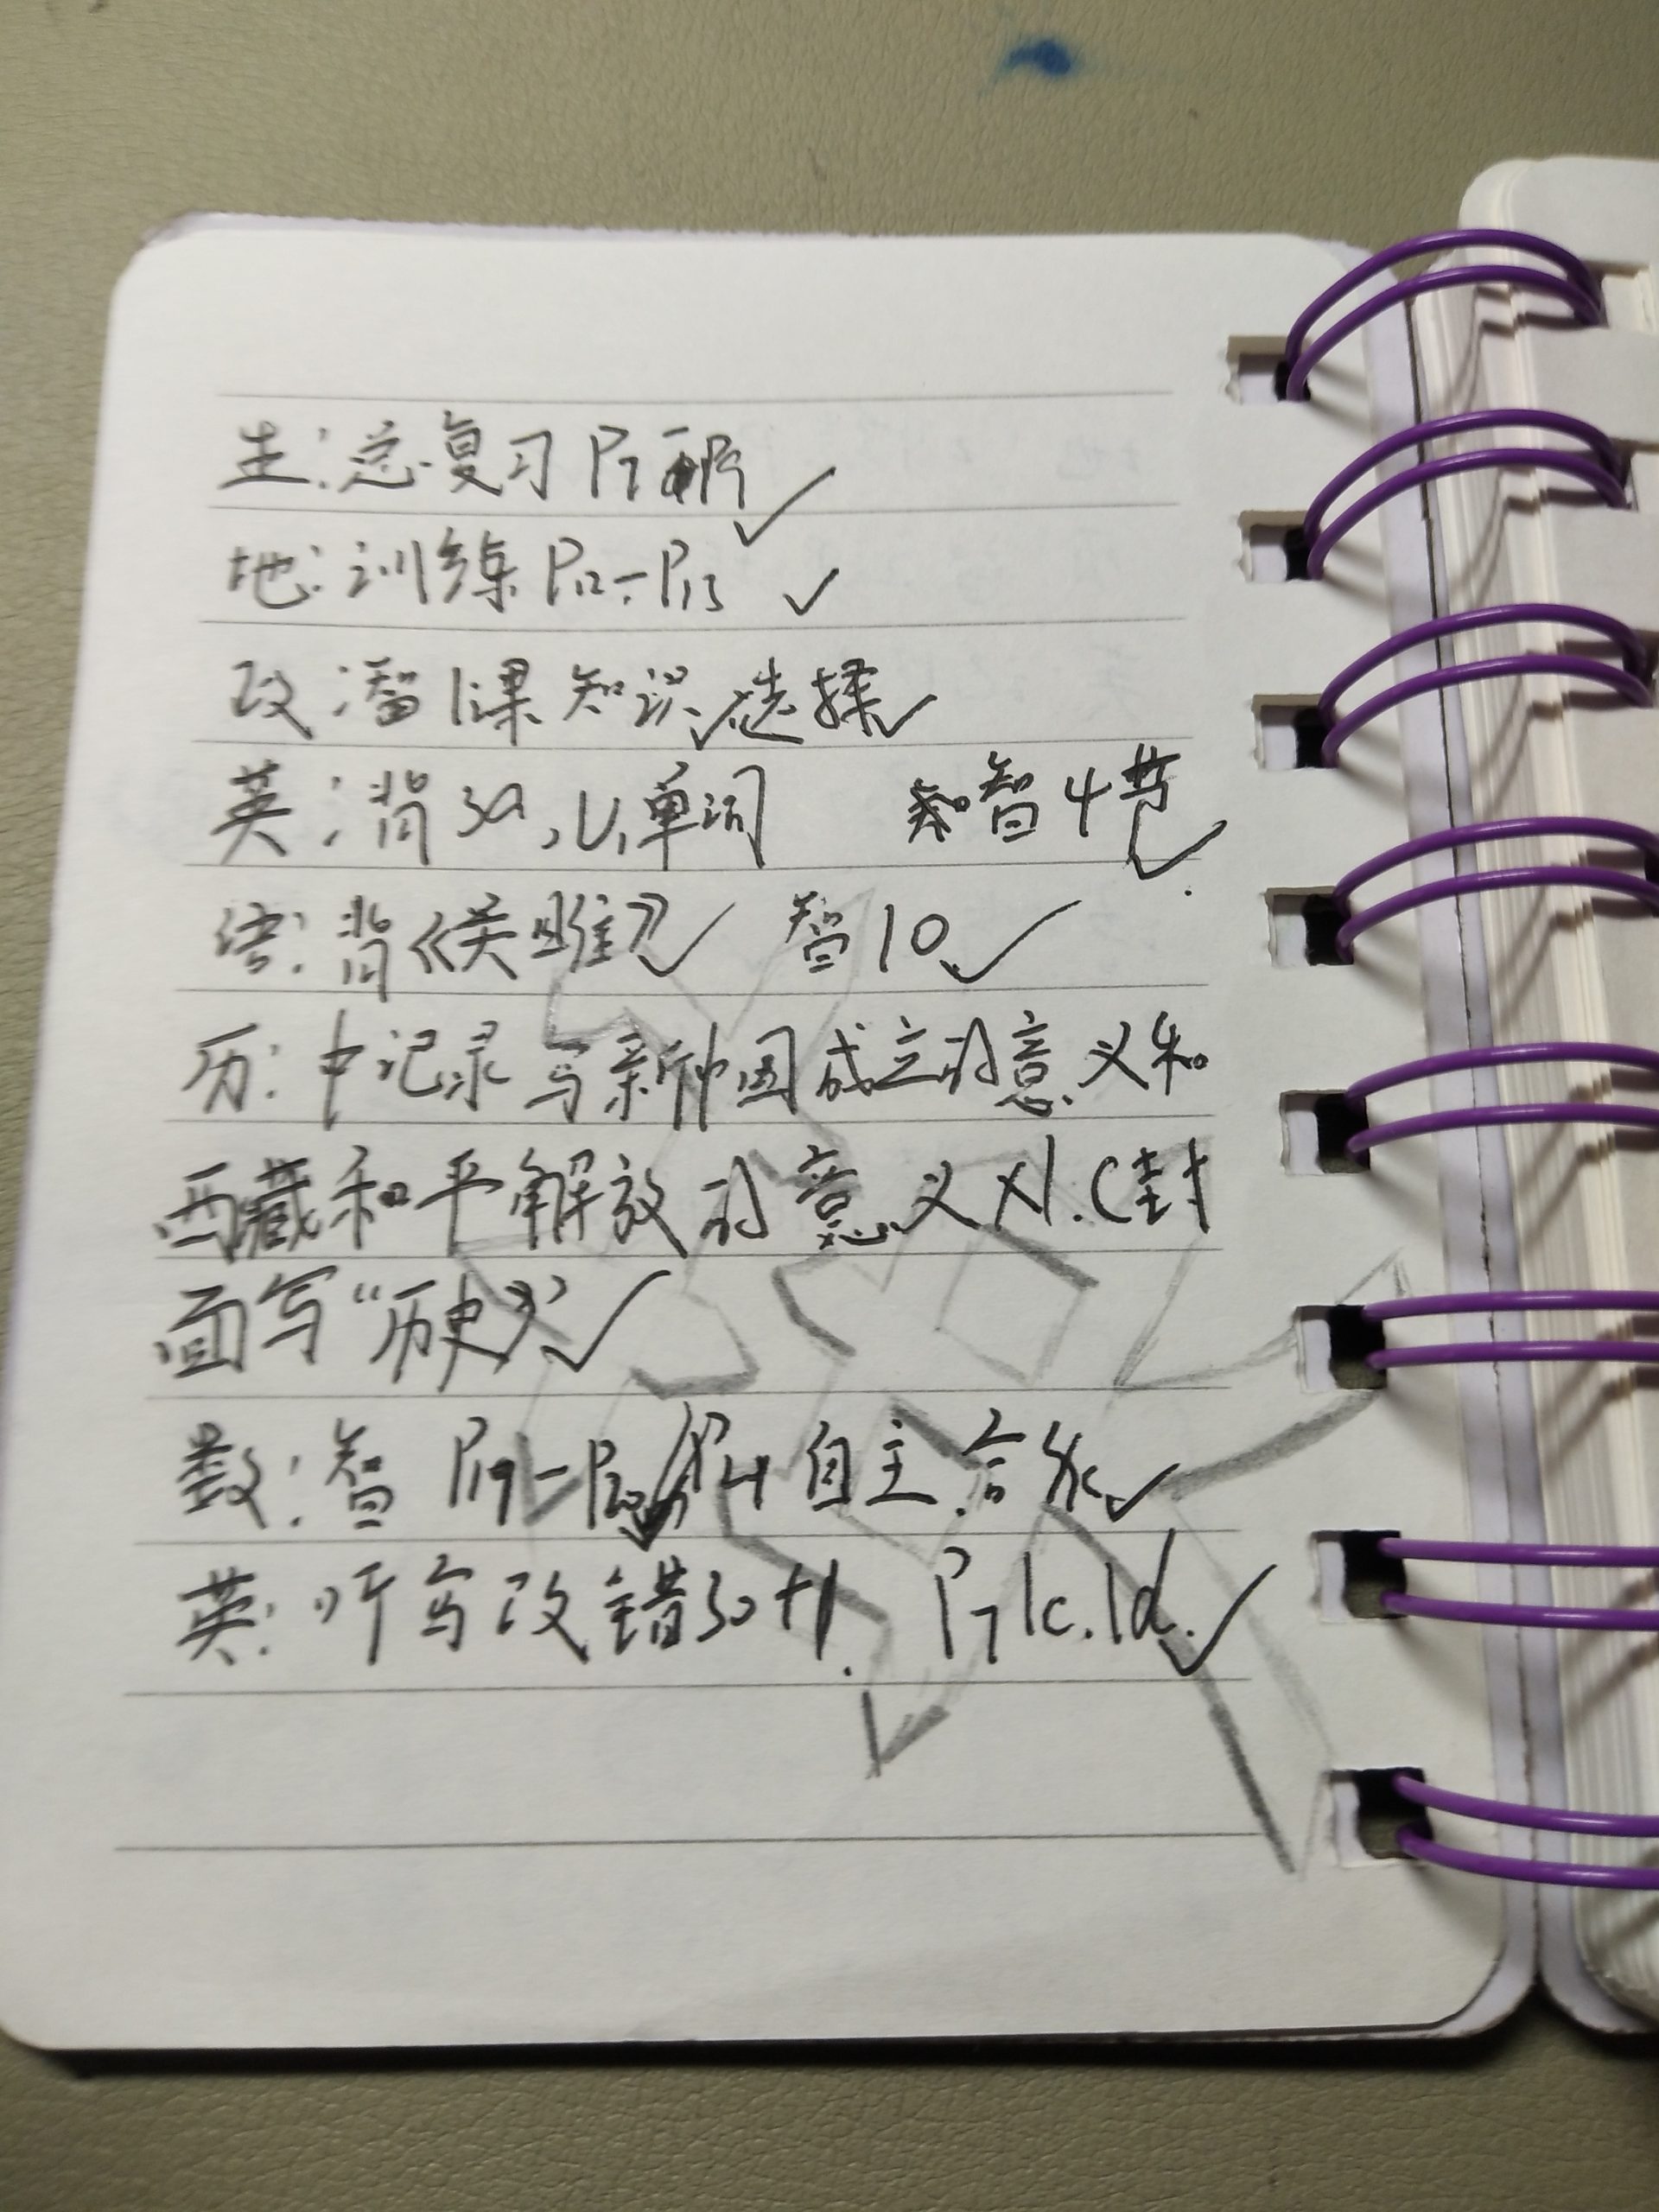 生:总复习 P7
地:训练 P12-P13 ✓
政:智1课知识✓选择✓
英:背3a,U1单词 智4块✓.
语:背《关雎》✓ 智10✓
历:中记录写新中国成立的意义和
西藏和平解放的意义×1.(封
面写“历史”)✓
数:智 P19-P20 P4自主✓
英:听写改错30+1. P7 1c.1d.✓